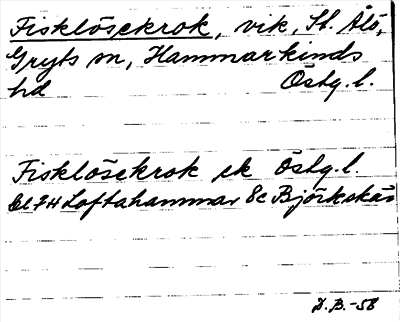 Fisklösekrok, vik, St. Ålö,
Gryts sn, Hammarkinds
hd Östg.l.
Fisklösekrok ek Östg.l.
bl 7H Loftahammar 8c Björkskär
D.B.-58